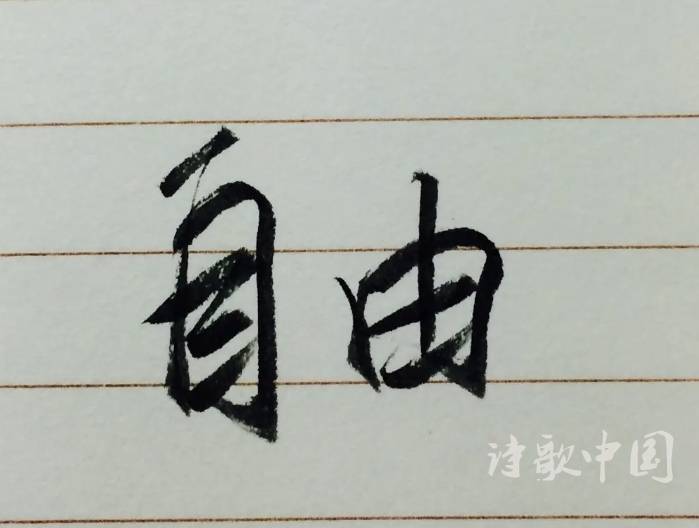 自由
诗歌中国